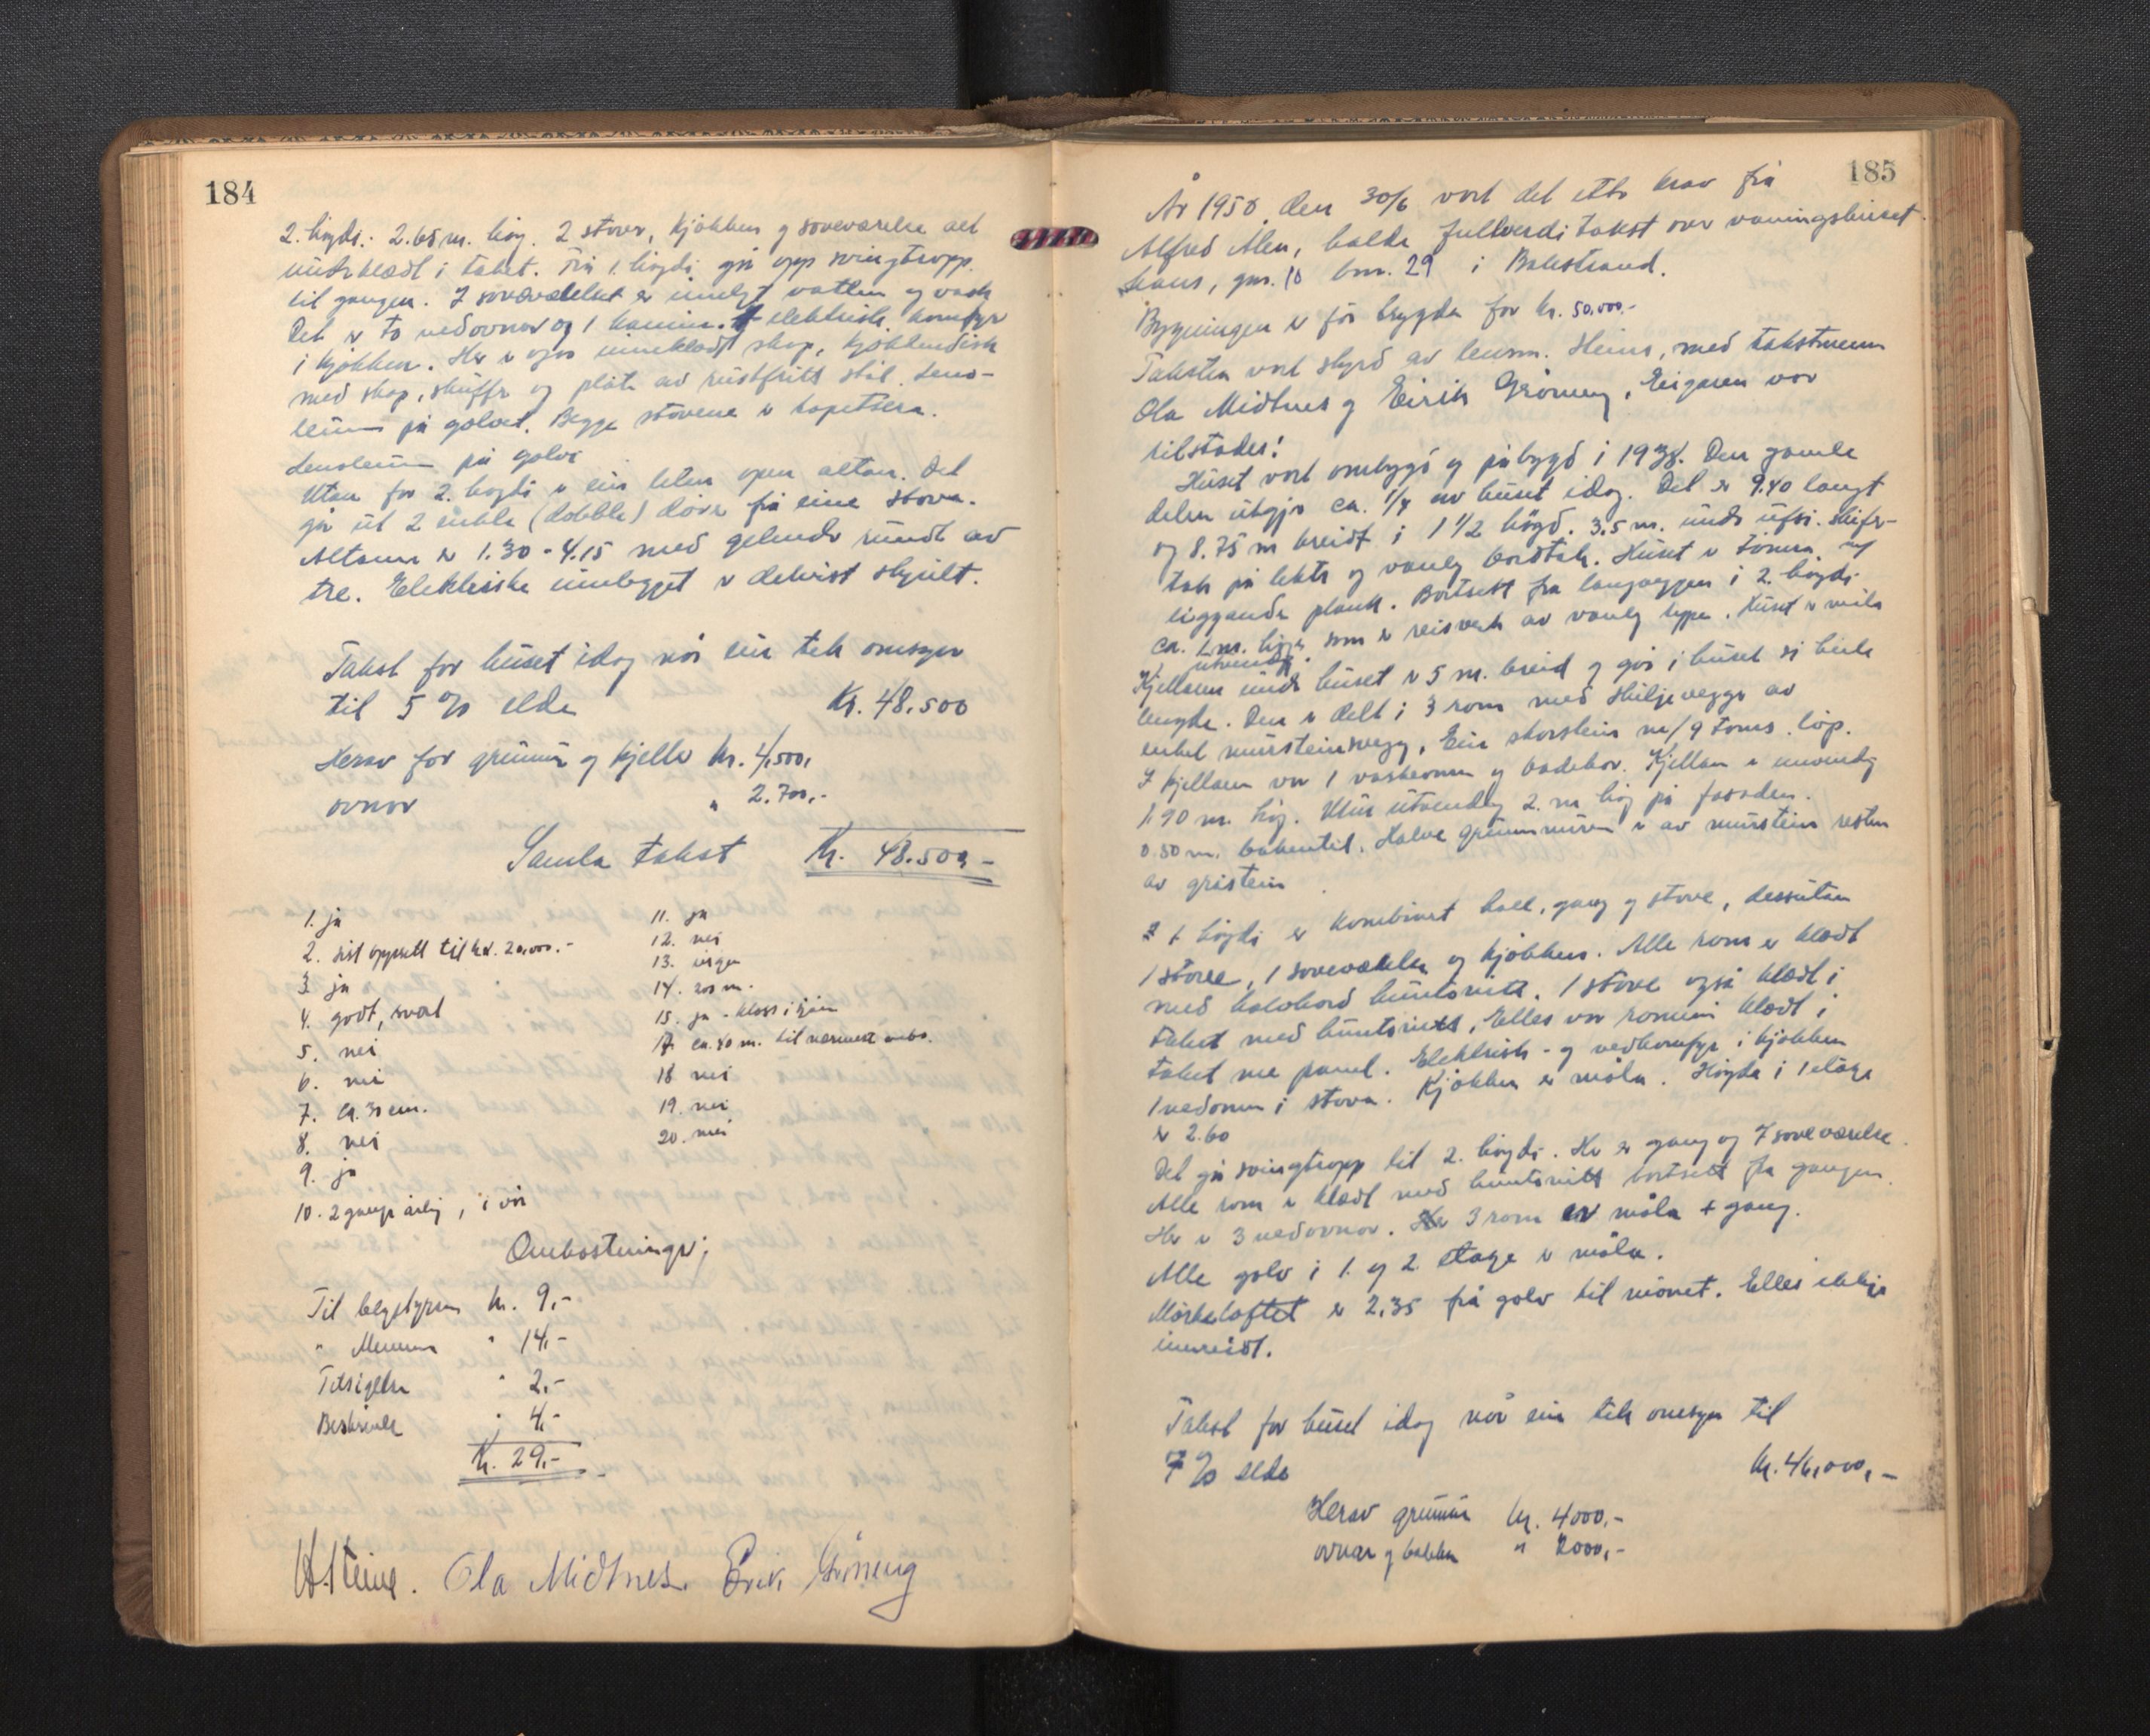 184
2. høgdi: 2.65 m. høg. 2 stover, kjøkken og soveværelse alt
underklædt i taket. Frå 1. høgdi går opp svingtropp
til gangen. I soveværelset er innlagt vatten og vask
Det er to vedovnar og 1 kamin. elektrisk komfyr
i kjøkken. Her er og innekledt skap, kjøkkendisk
med skap, skuffer og plate av rustfritt stål. Leno-
leum på golvet. Begge stovene er tapetsera.
Lenoleum på golvi
Utan for 2. høgdi er ein liten open altan. Det
går ut 2 enkle (dobble) dører frå eine stova.
Altanen er 1.30 - 4.15 med gelender rundt av
tre. Elektriske innlegget er delvist skjult.
Takst for huset idag når ein tek omsyn
til 5 % elde Kr. 48.500
Herav for grunnur og kjeller kr. 4,500,
ovnar " 2.700,-
Samla takst Kr. 48.500 -
1. ja
2. sist oppsett til kr. 20,000.-
3. ja
4. godt, svart
5. nei
6. nei
7. ca. 30 cm.
8. nei
9. ja
10. 2 gangr årleg, i vår
11. ja
12. nei
13. ingen
14. 200 m.
15. ja -
17. ca. 80 m. til nærmast
18 nei
19. nei
20. nei
Omkostningar;
Til kr. 9,-
" Mennene " 14,-
Tilsigelse " 2,-
" 4,-
Kr. 29,-
H. Steine. Ola Midtnes. Eirik Grøneng
185
År 1958 den 30/6 vart det etter krav frå
Alfred Alen, halde fullverdi takst over våningshuset
hans, gnr. 10 bnr. 29 i Balestrand.
Bygningen er før trygda for kr. 50.000.-
Taksten vart styrd av lensm. Steine, med takstmenn
Ola Midtnes og Eirik Grøneng. Eigaren var
tilstades!
Huset vart ombygd og påbygd i 1938. Den gamle
delen utgjer ca. 1/4 av huset idag. Det er 9.40 langt
og 8.75 m breidt i 1 1/2 høgd. 3.5 m. under ufsi. skifer-
tak på lekter og vanleg bordtak. Huset er tømra av
liggande plank. Bortsett fra langveggen i 2. høgdi
ca. 2 m. høge som er reisverk av vanleg type. Huset er måla
utvendig.
Kjellaren under huset er 5 m. breid og går i huset si heile
lengde. Den er delt i 3 rom med skiljevegger av
enkel mursteinsvegg. Ein skorstein m/ 9 toms. løp.
I kjellaren var 1 vaskeomn og badekar. Kjellaren er innvendig
1.90 m. høg. Mur utvendig 2. m høg på fasaden.
0.50 m. bakentil. Halve grunnmuren er av murstein resten
av gråstein
1 høgdi er kombinert hall, gang og stove, dessutan
1 stove, 1 soveværelse og kjøkken. Alle rom er klædt
med halvhard huntonitt. 1 stove også klædt i
taket med huntonitt, Elles var rommi klædt i
taket me panel. Elektrisk- og vedkomfyr i kjøkken
1 vedomn i stova. Kjøkken er måla. Høgda i 1 etage
er 2.60
Det går svingtropp til 2. høgdi. Her er gang og 7 soveværelse.
Alle rom er klædt med huntonitt bortsett fra gangen.
Her er 3 vedovnar. 3 rom er måla + gang.
Alle golv i 1. og 2. etage er måla.
Mørkeloftet er 2.35 frå golv til mønet. Elles ikkje
innreidt.
Takst for huset idag når ein tek omsyn til
7 % elde kr. 46,000,-
Herav grunnur kr. 4000,-
ovnar og " 2000,-